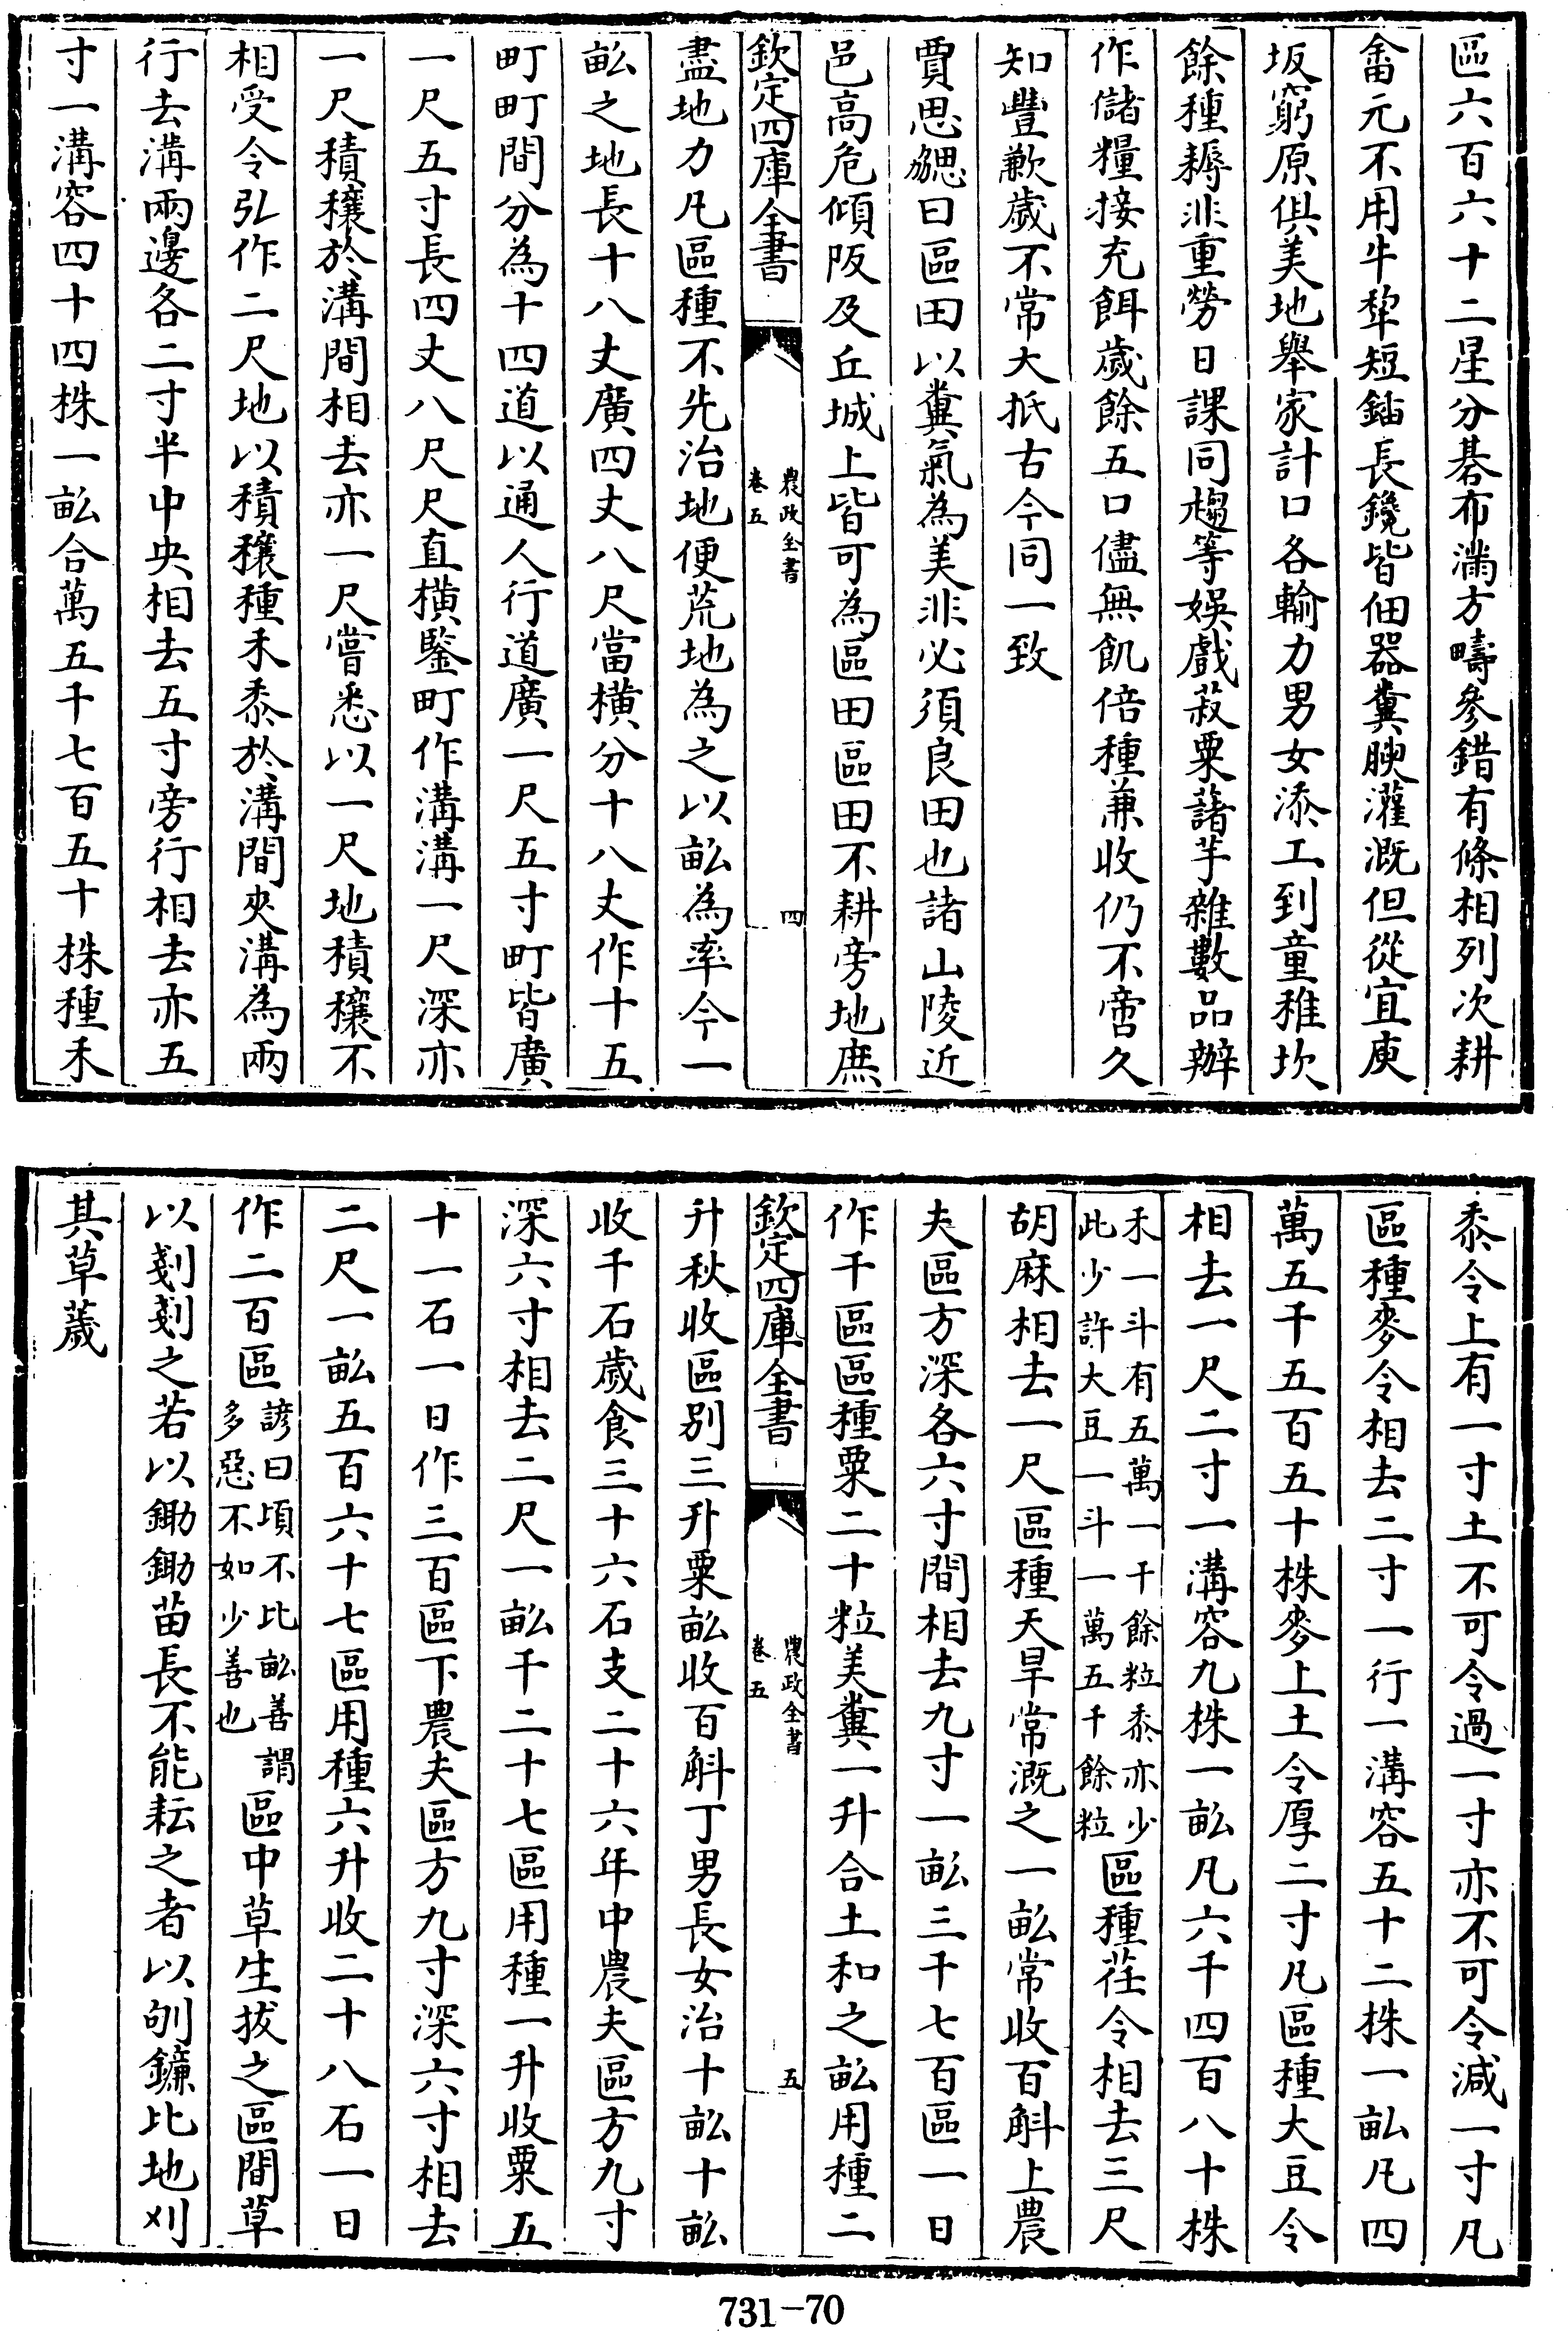 區六百六十二星分棊布滿方疇參錯有條相列次耕
畬元不用牛犂短鍤長鑱皆佃器糞腴灌溉但從宜庾
坂窮原俱美地舉家計口各輸力男女添工到童稚坎
餘種耨非重勞日課同趨等娛戲菽粟藷芋雜數品辦
作儲糧接充餌歲餘五口儘無飢倍種兼收仍不啻久
知豐歉歲不常大抵古今同一致
賈思勰曰區田以糞氣為美非必須良田也諸山陵近
邑高危傾阪及丘城上皆可為區田區田不耕旁地庶
欽定四庫全書
農政全書
卷五
四
盡地力凡區種不先治地便荒地為之以畝為率令一
畝之地長十八丈廣四丈八尺當橫分十八丈作十五
町町間分為十四道以通人行道廣一尺五寸町皆廣
一尺五寸長四丈八尺尺直橫鑿町作溝溝一尺深亦
一尺積穰於溝間相去亦一尺嘗悉以一尺地積穰不
相受令弘作二尺地以積穰種禾黍於溝間夾溝為兩
行去溝兩邊各二寸半中央相去五寸旁行相去亦五
寸一溝容四十四株一畝合萬五千七百五十株種禾
黍令上有一寸土不可令過一寸亦不可令減一寸凡
區種麥令相去二寸一行一溝容五十二株一畝凡四
萬五千五百五十株麥上土令厚二寸凡區種大豆令
相去一尺二寸一溝容九株一畝凡六千四百八十株
禾一斗有五萬一千餘粒黍亦少
此少許大豆一斗一萬五千餘粒
區種荏令相去三尺
胡麻相去一尺區種天旱常溉之一畝常收百斛上農
夫區方深各六寸間相去九寸一畝三千七百區一日
作千區區種粟二十粒美糞一升合土和之畝用種二
欽定四庫全書
農政全書
卷五
五
升秋收區別三升粟畝收百斛丁男長女治十畝十畝
收千石歲食三十六石支二十六年中農夫區方九寸
深六寸相去二尺一畝千二十七區用種一升收粟五
十一石一日作三百區下農夫區方九寸深六寸相去
二尺一畝五百六十七區用種六升收二十八石一日
作二百區
諺曰頃不比畝善謂
多惡不如少善也
區中草生拔之區間草
以剗剗之若以鋤鋤苗長不能耘之者以刨鐮比地刈
其草薉